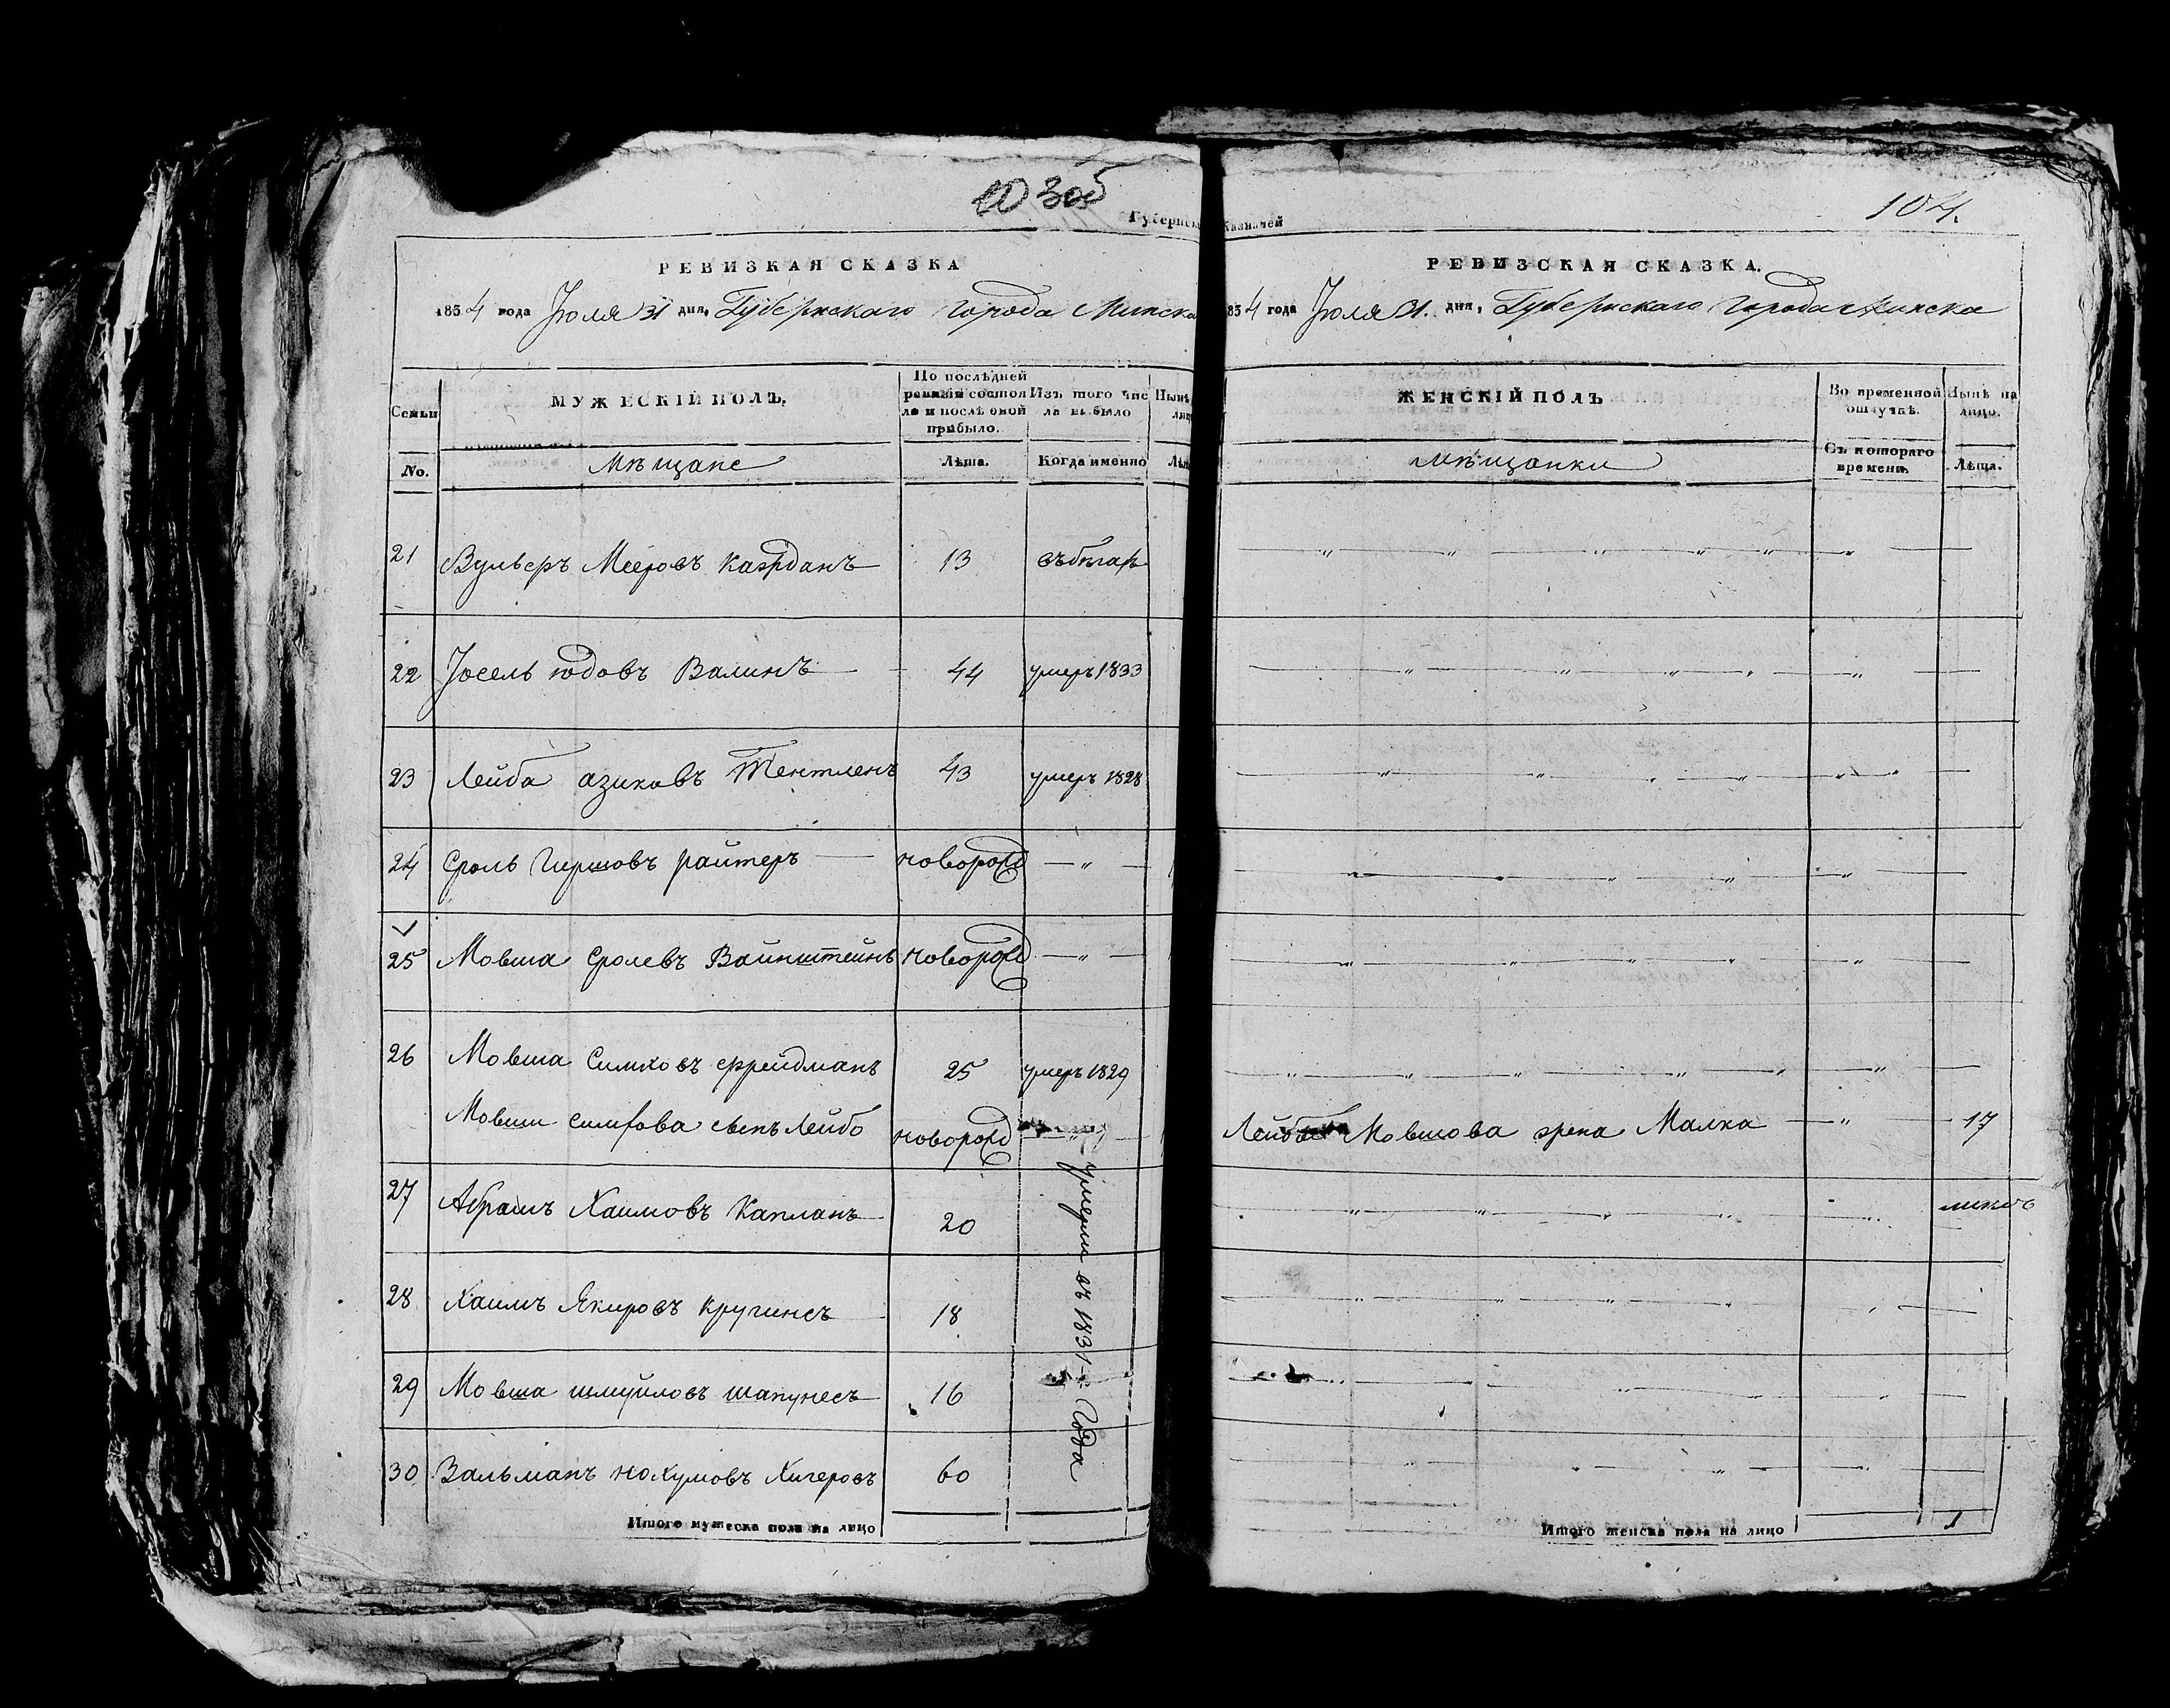 305
Губернск
РЕВИЗКАЯ СКАЗКА
1834 года Июля 31 дня, Губернскаго города Минска
Семьи
МУЖЕСКІЙ ПОЛЪ.
По послѣдней ревизіи состояло и послѣ оной прибыло.
Изъ того числа выбыло
Нынѣ
No.
Мѣщане
Лѣта.
Когда именно
21 Вульфъ Мееровъ 13
22 Іосель Юдовъ Валинъ 44 умеръ 1833
23 Лейба азиковъ 43 умеръ 1828
24 Сроль Гиршовъ райтеръ новорожд
25 Мовша Сролевъ Вайнштейнъ новорожд
26 Мовша Симховъ Фрейдманъ 25 умеръ 1829
Мовши Симхова сынъ Лейбо новорожд
27 Абрамъ Хаимовъ Капланъ 20
28 Хаимъ Якировъ 18
29 Мовша шмуйловъ 16
30 Зальманъ нохумовъ Хигеровъ 60
умерли въ 1831 года
Итого мужеска пола на лицо
казначей
104.
РЕВИЗСКАЯ СКАЗКА.
834 года Июля 31. дня, Губернскаго города Минска
ЖЕНСКІЙ ПОЛЪ
Во временной отлучкѣ.
Нынѣ на лицо.
Мѣщанки
Съ котораго времени.
Лѣта.
Мовшова жена Малка 17
Итого женска пола на лицо 1